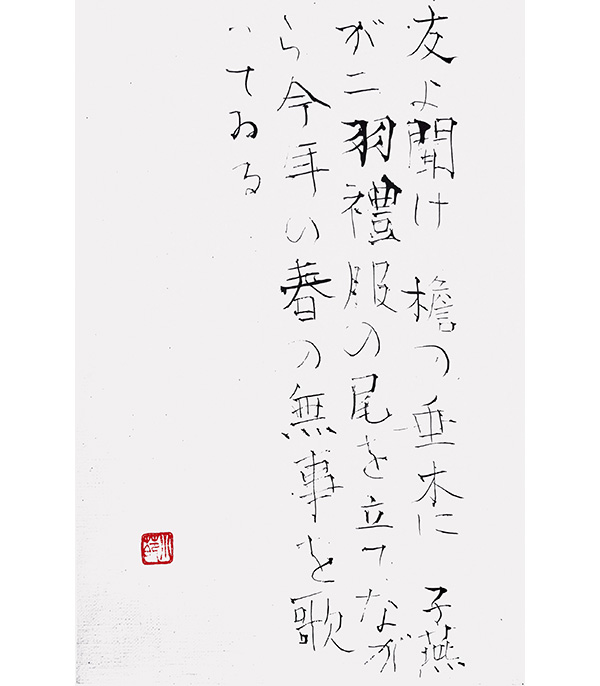 友よ聞け 檐の垂木に 子燕
が二羽禮服の尾を立てなが
ら今年の春の無事を歌
つてゐる